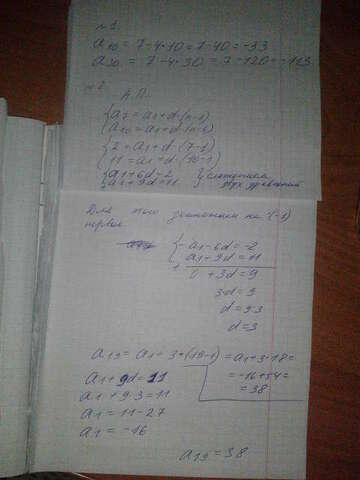 №1
a10 = 7-4·10 = 7-40 = -33
a30 = 7-4·30 = 7-120 = -113
№2
А.П.
{a7 = a1+d·(n-1)
{a10 = a1+d·(n-1)
{2 = a1+d·(7-1)
{11 = a1+d·(10-1)
{a1+6d=2
{a1+9d=11
двух уравнений
Для того умножаем на (-1)
первое
{-a1-6d=-2
a1+9d=11
0+3d=9
3d=9
d=9:3
d=3
a19 = a1+3·(19-1) = a1+3·18 =
= -16+54 =
= 38
a1+9d=11
a1+9·3=11
a1=11-27
a1=-16
a19=38